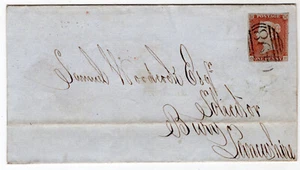 POSTAGE
Samuel Woodcock Esqr
Solicitor
Bury
Lancashire